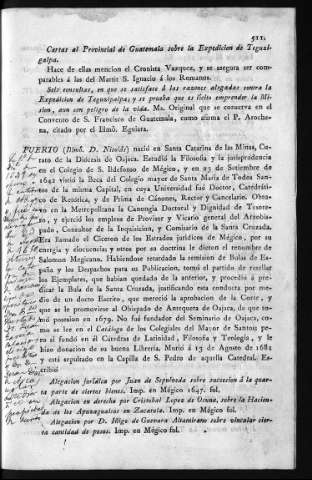 511.
Cartas al Provincial de Guatemala sobre la Expedicion de Teguzi-
galpa.
Hace de ellas mencion el Cronista Vazquez, y se asegura ser com-
parables á las del Martir S. Ignacio á los Romanos.
Seis consultas, en que se satisface á las razones alegadas contra la
Expedicion de Teguzigalpa; y se prueba que es licito emprender la Mi-
sion, aun con peligro de la vida. Ms. Original que se conserva en el
Convento de S. Francisco de Guatemala, como afirma el P. Aroche-
na, citado por el Illmô. Eguiara.
PUERTO (Illmô. D. Nicolás) nació en Santa Catarina de las Minas, Cu-
rato de la Diócesis de Oajaca. Estudió la Filosofia y la jurisprudencia
en el Colegio de S. Ildefonso de Mégico, y en 23 de Setiembre de
1642 vistió la Beca del Colegio mayor de Santa María de Todos San-
tos de la misma Capital, en cuya Universidad fué Doctor, Catedráti-
co de Retórica, y de Prima de Cánones, Rector y Cancelario. Obtu-
vo en la Metropolitana la Canongía Doctoral y Dignidad de Tesore-
ro, y ejerció los empleos de Provisor y Vicario general del Arzobis-
pado, Consultor de la Inquisicion, y Comisario de la Santa Cruzada.
Era llamado el Ciceron de los Estrados jurídicos de Mégico, por su
energía y elocuencia, y otros por su doctrina le dieron el renombre de
Salomon Megicano. Habiendose retardado la remision de Bulas de Es-
paña y los Despachos para su Publicacion, tomó el partido de resellar
los Ejemplares, que habian quedado de la anterior, y procedió á pre-
dicar la Bula de la Santa Cruzada, justificando esta conducta por me-
dio de un docto Escrito, que mereció la aprobacion de la Corte, y
que se le promoviese al Obispado de Antequera de Oajaca, de que to-
mó posesion en 1679. No fué fundador del Seminario de Oajaca, co-
mo se lee en el Catálogo de los Colegiales del Mayor de Santos; pe-
ro sí fundó en él Cátedras de Latinidad, Filosofia y Teología, y le
hizo donacion de su buena Librería. Murió á 13 de Agosto de 1681
y está sepultado en la Capilla de S. Pedro de aquella Catedral. Es-
cribió
Alegacion jurídica por Juan de Sepulveda sobre sucesion á la quar-
ta parte de ciertos bienes. Imp. en Mégico 1647. fol.
Alegacion en derecho por Cristobal Lopez de Osuna, sobre la Hacien-
da de los Apunagualtas en Zacatula. Imp. en Mégico fol.
Alegacion por D. Iñigo de Guevara Altamirano sobre vincular cier-
ta cantidad de pesos. Imp. en Mégico fol.